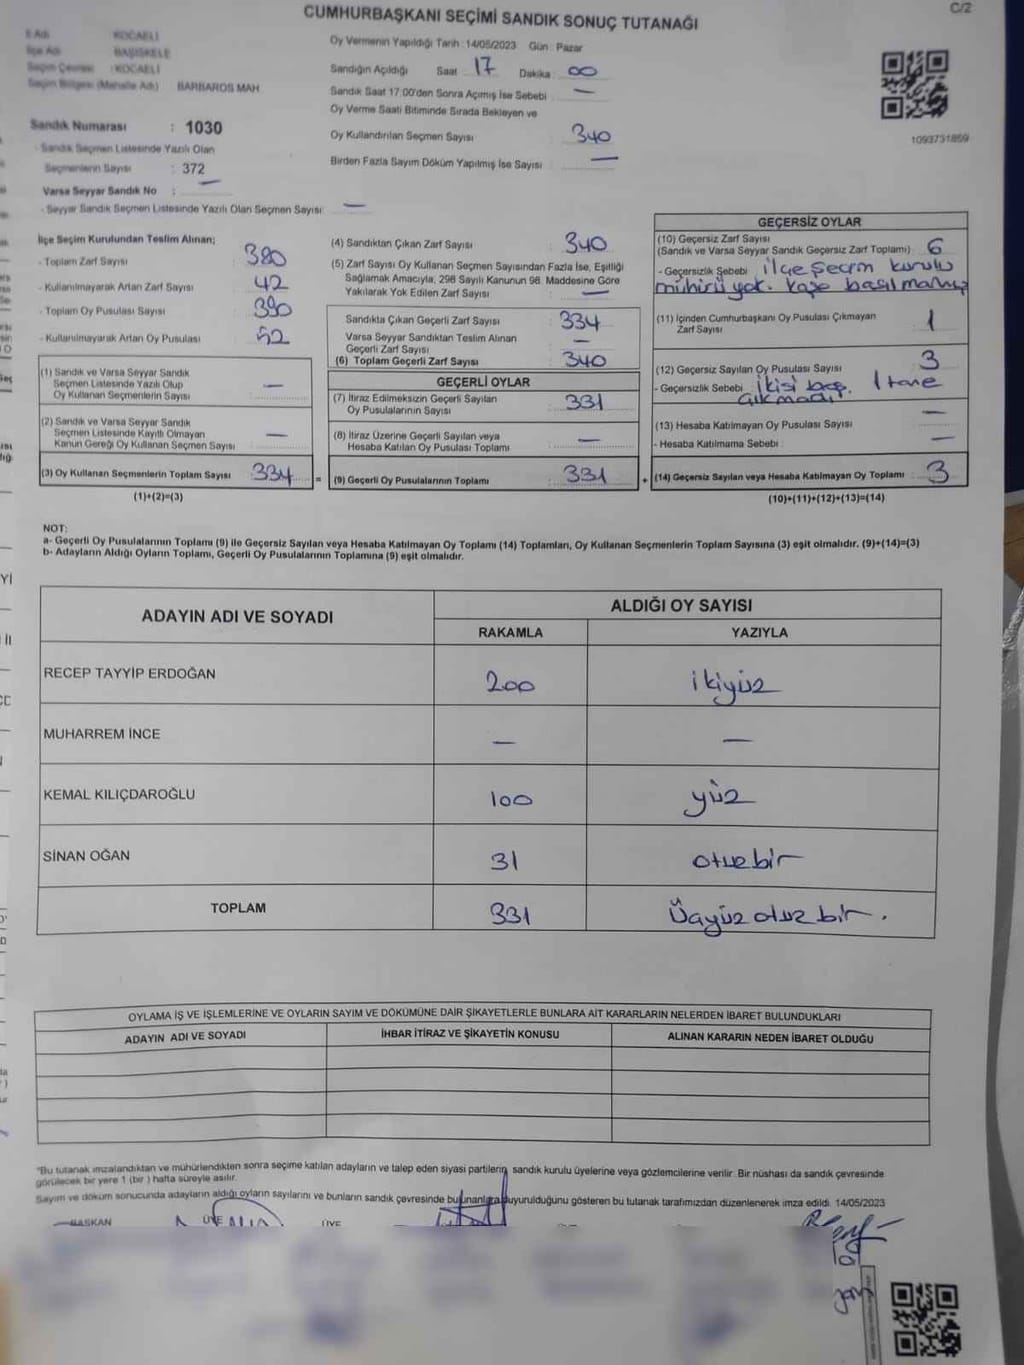 C/2
CUMHURBAŞKANI SEÇİMİ SANDIK SONUÇ TUTANAĞI
İl Adı KOCAELİ
İlçe Adı BAŞİSKELE
Seçim Çevresi : KOCAELİ
Seçim Bölgesi (Mahalle Adı) BARBAROS MAH.
Sandık Numarası : 1030
- Sandık Seçmen Listesinde Yazılı Olan
Seçmenlerin Sayısı : 372
Varsa Seyyar Sandık No : —
- Seyyar Sandık Seçmen Listesinde Yazılı Olan Seçmen Sayısı: —
Oy Vermenin Yapıldığı Tarih :14/05/2023 Gün : Pazar
Sandığın Açıldığı Saat : 17 Dakika : 00
Sandık Saat 17:00'den Sonra Açılmış İse Sebebi : —
Oy Verme Saati Bitiminde Sırada Bekleyen ve
Oy Kullandırılan Seçmen Sayısı : 340
Birden Fazla Sayım Döküm Yapılmış İse Sayısı : —
1093731859
İlçe Seçim Kurulundan Teslim Alınan;
- Toplam Zarf Sayısı : 380
- Kullanılmayarak Artan Zarf Sayısı : 42
- Toplam Oy Pusulası Sayısı : 390
- Kullanılmayarak Artan Oy Pusulası : 52
(1) Sandık ve Varsa Seyyar Sandık
Seçmen Listesinde Yazılı Olup
Oy Kullanan Seçmenlerin Sayısı : —
(2) Sandık ve Varsa Seyyar Sandık
Seçmen Listesinde Kayıtlı Olmayan
Kanun Gereği Oy Kullanan Seçmen Sayısı : —
(3) Oy Kullanan Seçmenlerin Toplam Sayısı : 334
(1)+(2)=(3)
=
(4) Sandıktan Çıkan Zarf Sayısı : 340
(5) Zarf Sayısı Oy Kullanan Seçmen Sayısından Fazla İse, Eşitliği
Sağlamak Amacıyla, 298 Sayılı Kanunun 98. Maddesine Göre
Yakılarak Yok Edilen Zarf Sayısı : —
Sandıkta Çıkan Geçerli Zarf Sayısı : 334
Varsa Seyyar Sandıktan Teslim Alınan
Geçerli Zarf Sayısı : —
(6) Toplam Geçerli Zarf Sayısı : 340
GEÇERLİ OYLAR
(7) İtiraz Edilmeksizin Geçerli Sayılan
Oy Pusulalarının Sayısı : 331
(8) İtiraz Üzerine Geçerli Sayılan veya
Hesaba Katılan Oy Pusulası Toplamı : —
(9) Geçerli Oy Pusulalarının Toplamı : 331
+
GEÇERSİZ OYLAR
(10) Geçersiz Zarf Sayısı
(Sandık ve Varsa Seyyar Sandık Geçersiz Zarf Toplamı) : 6
- Geçersizlik Sebebi : ilçe seçim kurulu
mührü yok. kaşe basılmamış
(11) İçinden Cumhurbaşkanı Oy Pusulası Çıkmayan
Zarf Sayısı : 1
(12) Geçersiz Sayılan Oy Pusulası Sayısı : 3
- Geçersizlik Sebebi : ikisi boş. 1 tane
çıkmadı
(13) Hesaba Katılmayan Oy Pusulası Sayısı : —
- Hesaba Katılmama Sebebi : —
(14) Geçersiz Sayılan veya Hesaba Katılmayan Oy Toplamı : 3
(10)+(11)+(12)+(13)=(14)
NOT:
a- Geçerli Oy Pusulalarının Toplamı (9) ile Geçersiz Sayılan veya Hesaba Katılmayan Oy Toplamı (14) Toplamları, Oy Kullanan Seçmenlerin Toplam Sayısına (3) eşit olmalıdır. (9)+(14)=(3)
b- Adayların Aldığı Oyların Toplamı, Geçerli Oy Pusulalarının Toplamına (9) eşit olmalıdır.
ADAYIN ADI VE SOYADI ALDIĞI OY SAYISI
RAKAMLA YAZIYLA
RECEP TAYYİP ERDOĞAN 200 ikiyüz
MUHARREM İNCE — —
KEMAL KILIÇDAROĞLU 100 yüz
SİNAN OĞAN 31 otuzbir
TOPLAM 331 Üçyüz otuz bir.
OYLAMA İŞ VE İŞLEMLERİNE VE OYLARIN SAYIM VE DÖKÜMÜNE DAİR ŞİKAYETLERLE BUNLARA AİT KARARLARIN NELERDEN İBARET BULUNDUKLARI
ADAYIN ADI VE SOYADI İHBAR İTİRAZ VE ŞİKAYETİN KONUSU ALINAN KARARIN NEDEN İBARET OLDUĞU
"Bu tutanak imzalandıktan ve mühürlendikten sonra seçime katılan adayların ve talep eden siyasi partilerin sandık kurulu üyelerine veya gözlemcilerine verilir. Bir nüshası da sandık çevresinde
görülecek bir yere 1 (bir ) hafta süreyle asılır.
Sayım ve döküm sonucunda adayların aldığı oyların sayılarını ve bunların sandık çevresinde bulunanlara duyurulduğunu gösteren bu tutanak tarafımızdan düzenlenerek imza edildi. 14/05/2023
BAŞKAN ÜYE ÜYE